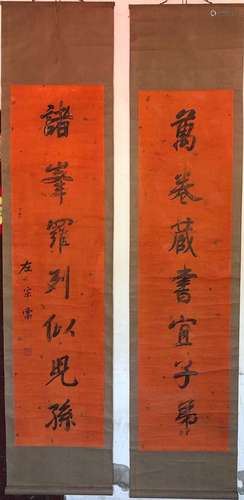 萬卷藏書宜子弟
諸峯羅列似兒孫
左宗棠